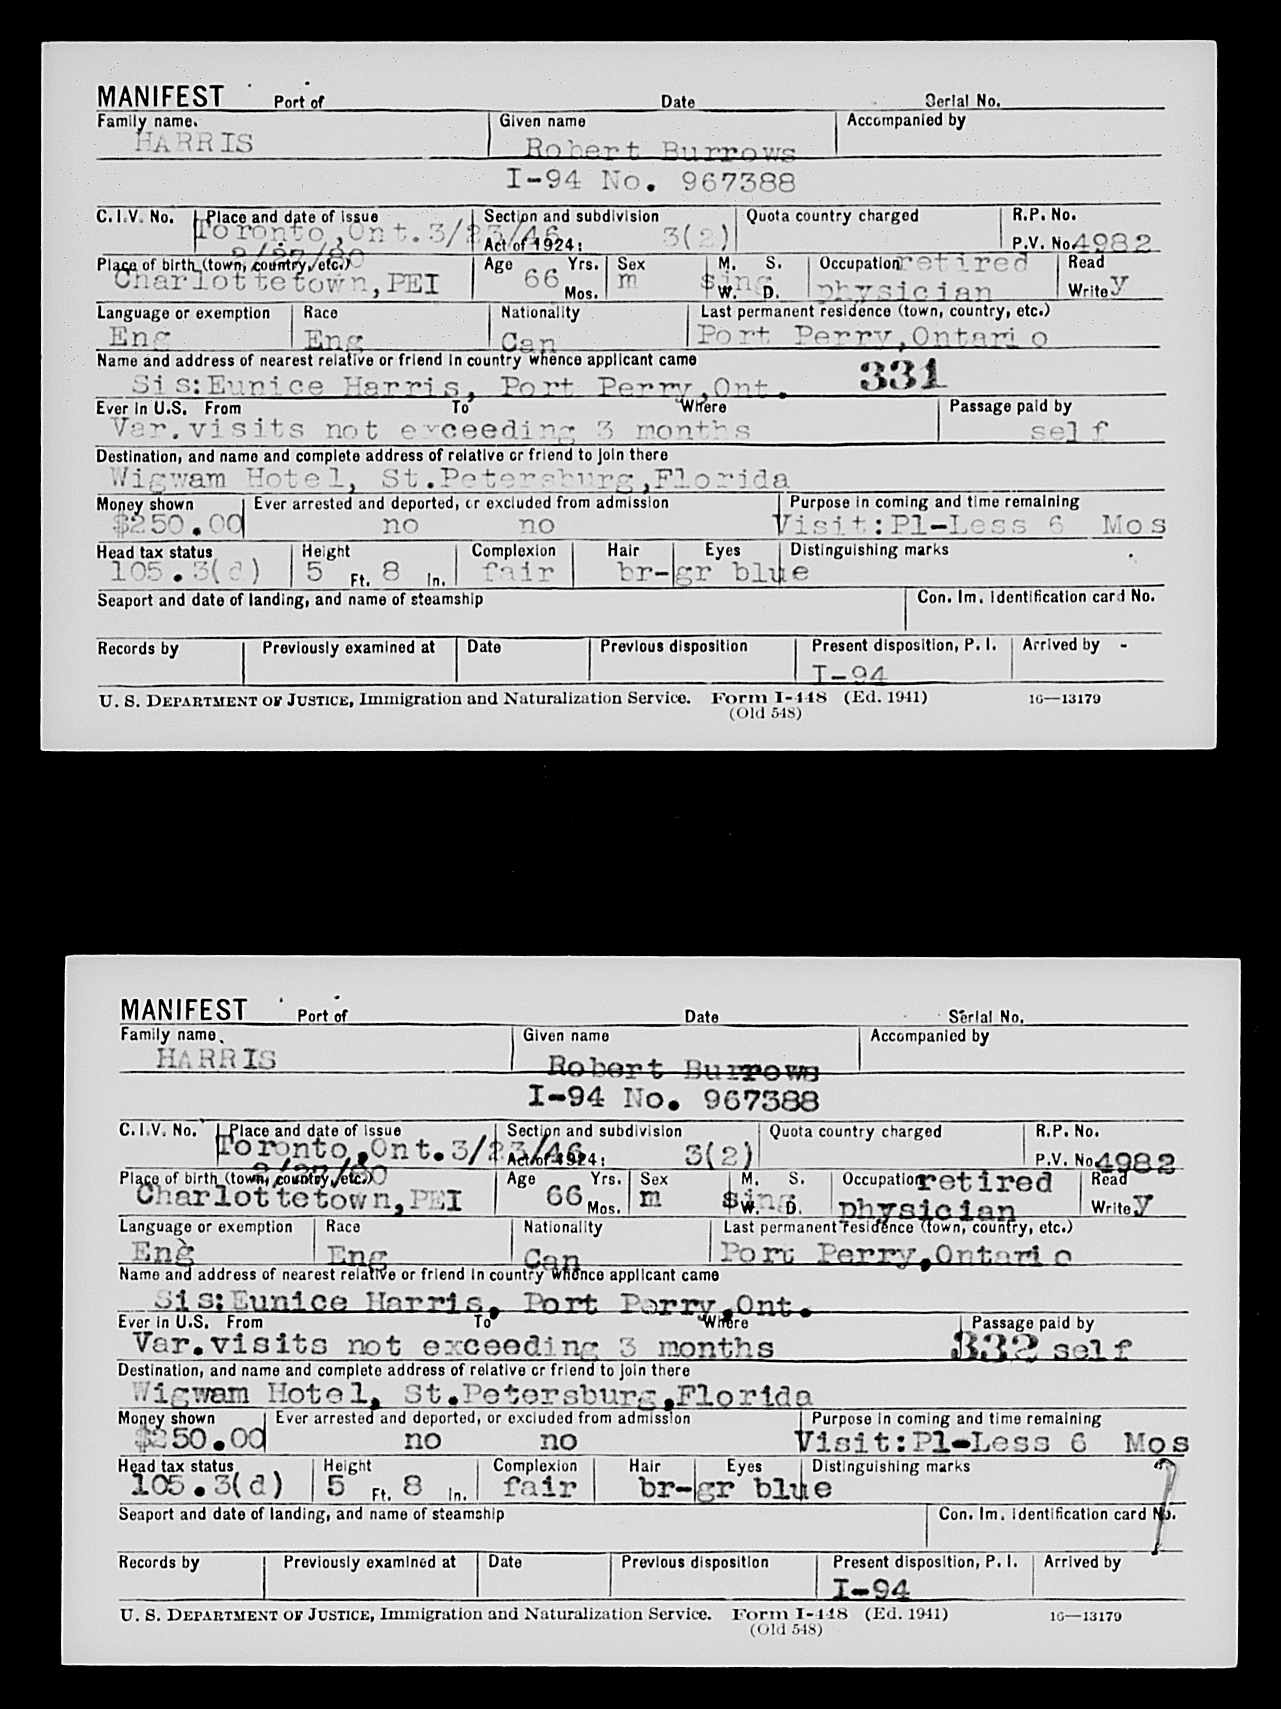 MANIFEST Port of Date Serial No.
Family name. Given name Accompanied by
HARRIS Robert Burrows
I-94 No. 967388
C.I.V. No. Place and date of issue Section and subdivision Quota country charged R.P. No.
Toronto,Ont.3/23/46 Act of 1924: 3(2) P.V. No. 4982
Place of birth (town, country, etc.) Age Yrs. Sex M. S. Occupation retired Read
Charlottetown,PEI 66 Mos. m Sing W. D. physician Write y
Language or exemption Race Nationality Last permanent residence (town, country, etc.)
Eng Eng Can Port Perry,Ontario
Name and address of nearest relative or friend in country whence applicant came
Sis:Eunice Harris, Port Perry,Ont. 331
Ever in U.S. From To Where Passage paid by
Var.visits not exceeding 3 months self
Destination, and name and complete address of relative or friend to join there
Wigwam Hotel, St.Petersburg,Florida
Money shown Ever arrested and deported, or excluded from admission Purpose in coming and time remaining
$250.00 no no Visit:Pl-Less 6 Mos
Head tax status Height Complexion Hair Eyes Distinguishing marks
105.3(d) 5 Ft. 8 In. fair br-gr blue
Seaport and date of landing, and name of steamship Con. Im. Identification card No.
Records by Previously examined at Date Previous disposition Present disposition, P. I. Arrived by
I-94
U. S. DEPARTMENT OF JUSTICE, Immigration and Naturalization Service. Form I-448 (Ed. 1941) 16—13179
(Old 548)
MANIFEST Port of Date Serial No.
Family name. Given name Accompanied by
HARRIS Robert Burrows
I-94 No. 967388
C.I.V. No. Place and date of issue Section and subdivision Quota country charged R.P. No.
Toronto,Ont.3/23/46 Act of 1924: 3(2) P.V. No. 4982
Place of birth (town, country, etc.) Age Yrs. Sex M. S. Occupation retired Read
Charlottetown,PEI 66 Mos. m Sing W. D. physician Write y
Language or exemption Race Nationality Last permanent residence (town, country, etc.)
Eng Eng Can Port Perry,Ontario
Name and address of nearest relative or friend in country whence applicant came
Sis:Eunice Harris, Port Perry,Ont.
Ever in U.S. From To Where Passage paid by
Var.visits not exceeding 3 months 332 self
Destination, and name and complete address of relative or friend to join there
Wigwam Hotel, St.Petersburg,Florida
Money shown Ever arrested and deported, or excluded from admission Purpose in coming and time remaining
$250.00 no no Visit:Pl-Less 6 Mos
Head tax status Height Complexion Hair Eyes Distinguishing marks
105.3(d) 5 Ft. 8 In. fair br-gr blue
Seaport and date of landing, and name of steamship Con. Im. Identification card No.
Records by Previously examined at Date Previous disposition Present disposition, P. I. Arrived by
I-94
U. S. DEPARTMENT OF JUSTICE, Immigration and Naturalization Service. Form I-448 (Ed. 1941) 16—13179
(Old 548)